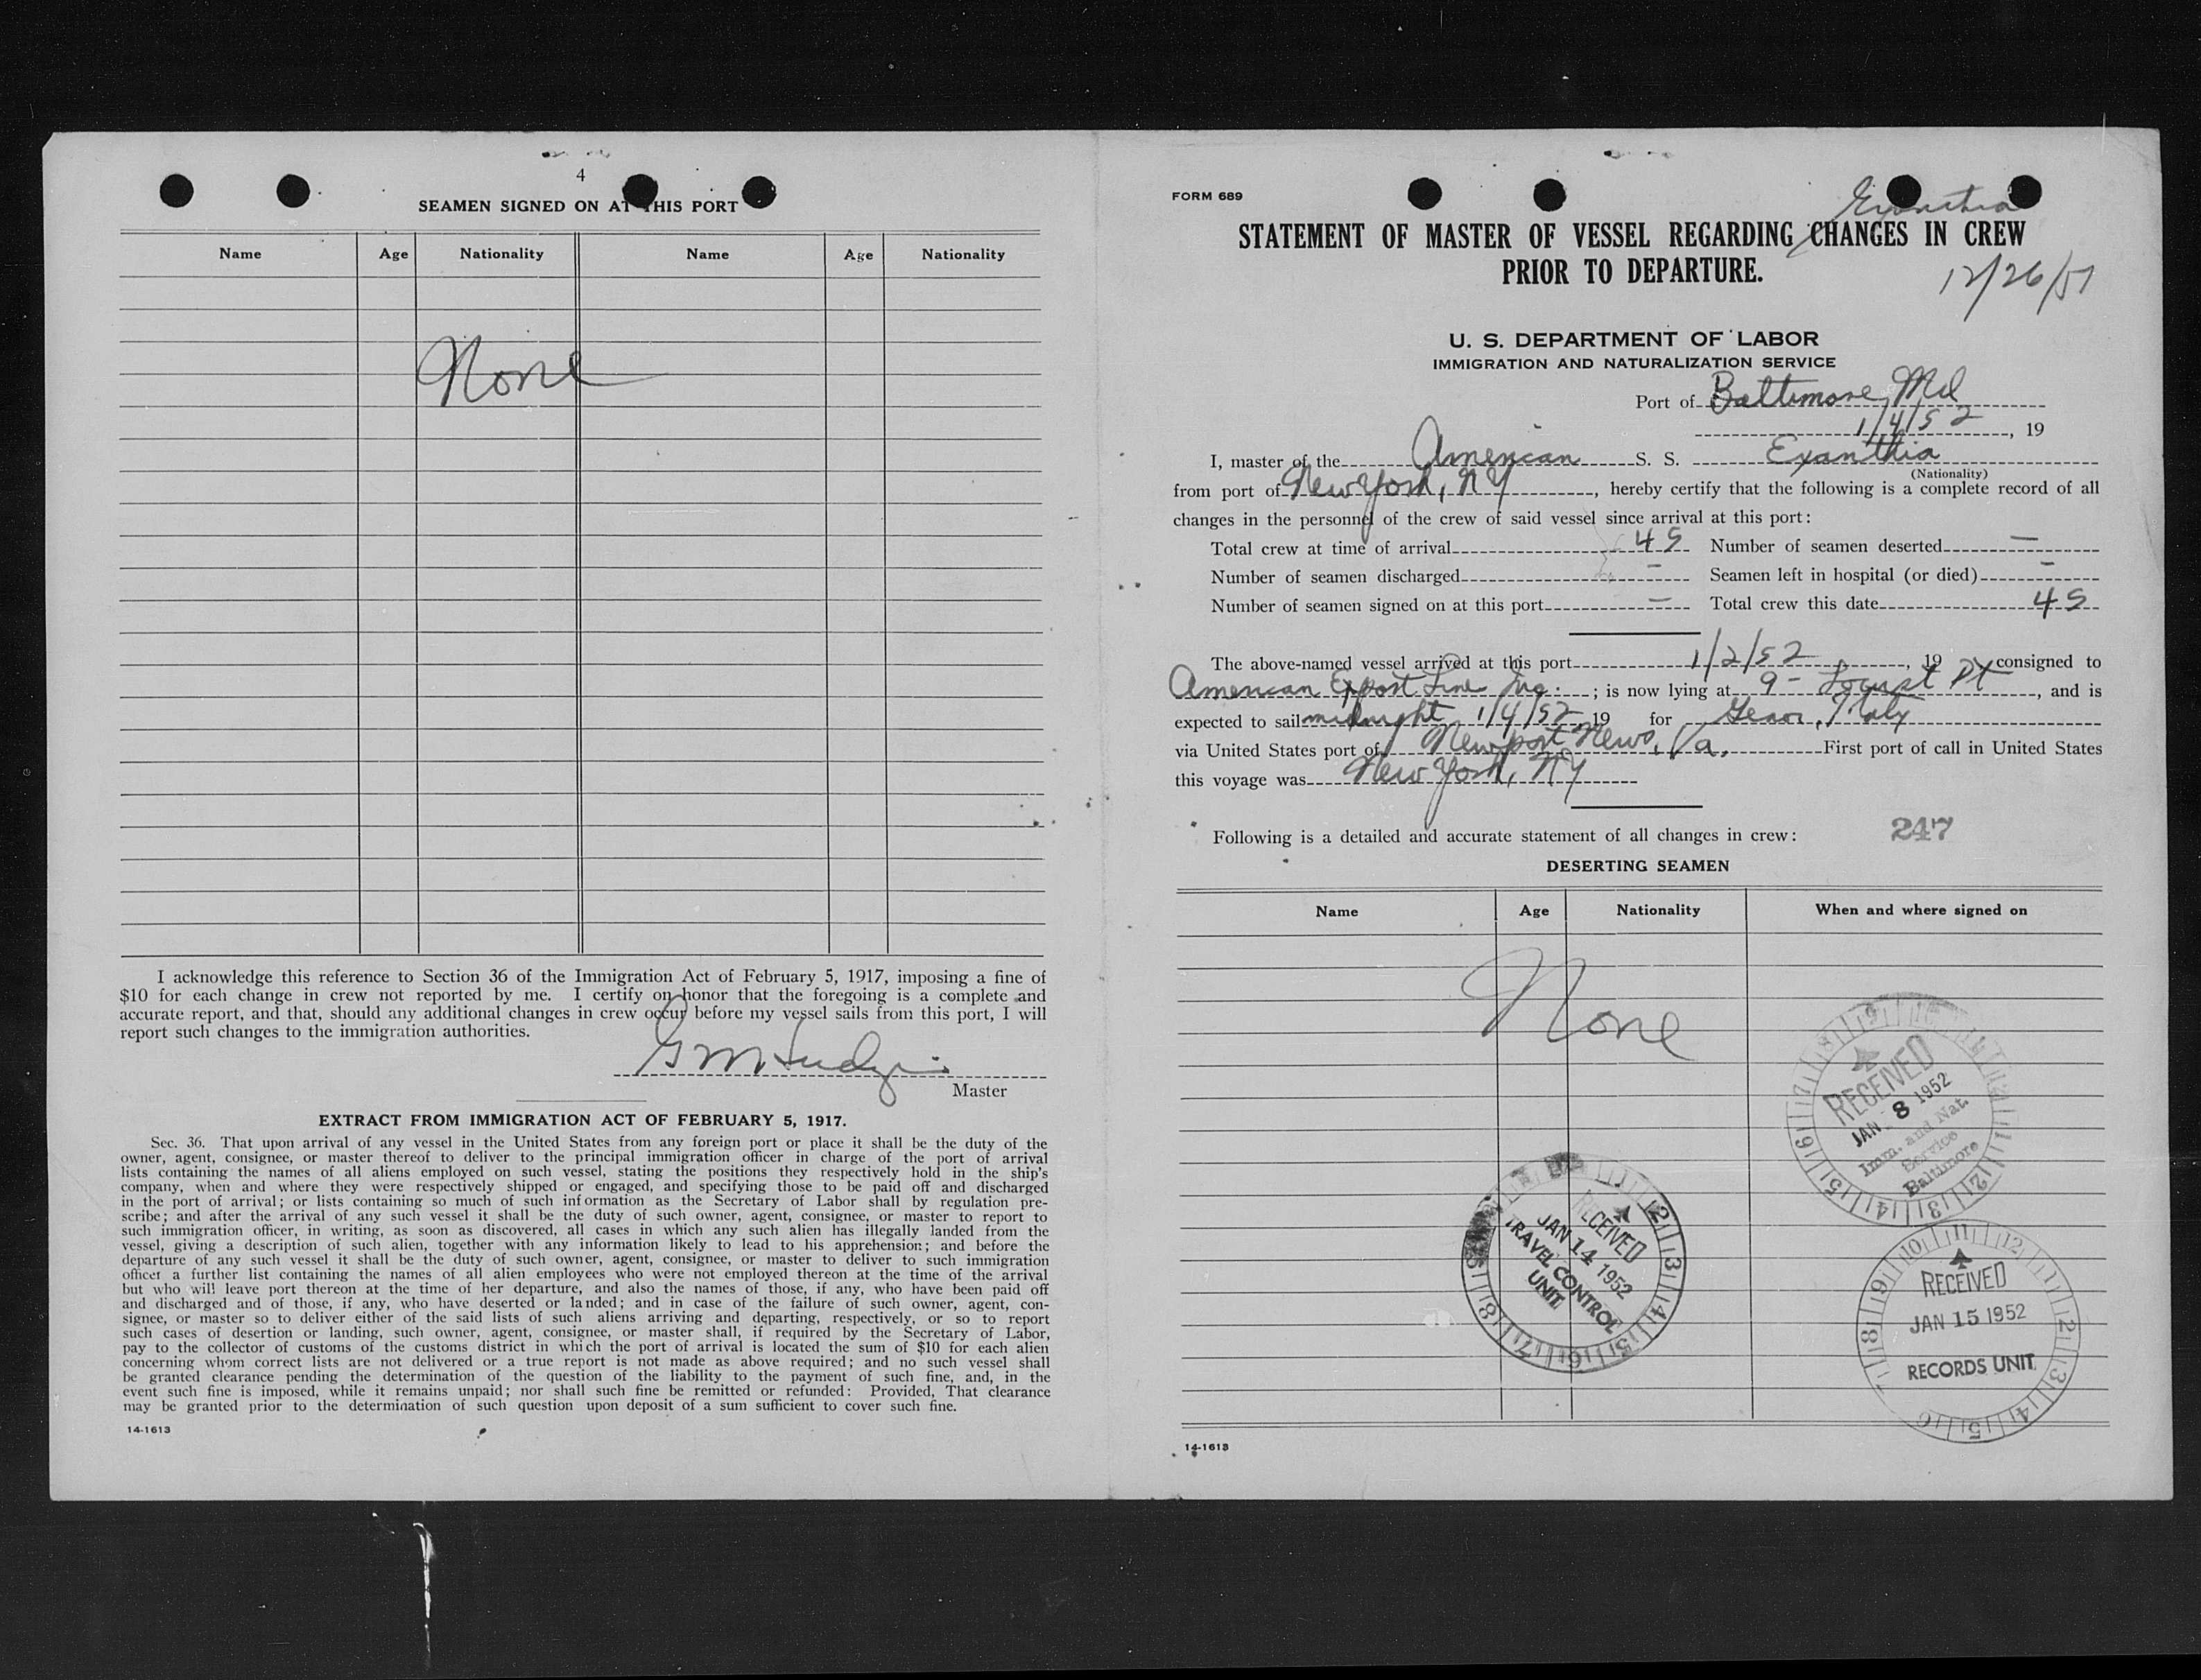 4
SEAMEN SIGNED ON AT THIS PORT
Name Age Nationality Name Age Nationality
None
I acknowledge this reference to Section 36 of the Immigration Act of February 5, 1917, imposing a fine of
$10 for each change in crew not reported by me. I certify on honor that the foregoing is a complete and
accurate report, and that, should any additional changes in crew occur before my vessel sails from this port, I will
report such changes to the immigration authorities.
Master
EXTRACT FROM IMMIGRATION ACT OF FEBRUARY 5, 1917.
Sec. 36. That upon arrival of any vessel in the United States from any foreign port or place it shall be the duty of the
owner, agent, consignee, or master thereof to deliver to the principal immigration officer in charge of the port of arrival
lists containing the names of all aliens employed on such vessel, stating the positions they respectively hold in the ship's
company, when and where they were respectively shipped or engaged, and specifying those to be paid off and discharged
in the port of arrival; or lists containing so much of such information as the Secretary of Labor shall by regulation pre-
scribe; and after the arrival of any such vessel it shall be the duty of such owner, agent, consignee, or master to report to
such immigration officer, in writing, as soon as discovered, all cases in which any such alien has illegally landed from the
vessel, giving a description of such alien, together with any information likely to lead to his apprehension; and before the
departure of any such vessel it shall be the duty of such owner, agent, consignee, or master to deliver to such immigration
officer a further list containing the names of all alien employees who were not employed thereon at the time of the arrival
but who will leave port thereon at the time of her departure, and also the names of those, if any, who have been paid off
and discharged and of those, if any, who have deserted or landed; and in case of the failure of such owner, agent, con-
signee, or master so to deliver either of the said lists of such aliens arriving and departing, respectively, or so to report
such cases of desertion or landing, such owner, agent, consignee, or master shall, if required by the Secretary of Labor,
pay to the collector of customs of the customs district in which the port of arrival is located the sum of $10 for each alien
concerning whom correct lists are not delivered or a true report is not made as above required; and no such vessel shall
be granted clearance pending the determination of the question of the liability to the payment of such fine, and, in the
event such fine is imposed, while it remains unpaid; nor shall such fine be remitted or refunded: Provided, That clearance
may be granted prior to the determination of such question upon deposit of a sum sufficient to cover such fine.
14-1613
FORM 689
Exanthia
STATEMENT OF MASTER OF VESSEL REGARDING CHANGES IN CREW
PRIOR TO DEPARTURE.
12/26/51
U. S. DEPARTMENT OF LABOR
IMMIGRATION AND NATURALIZATION SERVICE
Port of Baltimore, Md
1/4/52, 19
I, master of the American S. S. Exanthia
(Nationality)
from port of New York, NY, hereby certify that the following is a complete record of all
changes in the personnel of the crew of said vessel since arrival at this port:
Total crew at time of arrival 45 Number of seamen deserted —
Number of seamen discharged — Seamen left in hospital (or died) —
Number of seamen signed on at this port — Total crew this date 45
The above-named vessel arrived at this port 1/2/52, 19 consigned to
American Export Line Inc.; is now lying at 9 - Locust Pt, and is
expected to sail midnight 1/4/52, 19 for Genoa, Italy
via United States port of Newport News, Va. First port of call in United States
this voyage was New York, NY
Following is a detailed and accurate statement of all changes in crew:
247
DESERTING SEAMEN
Name Age Nationality When and where signed on
None
RECEIVED
JAN 8 1952
Imm. and Nat.
Service
Baltimore
RECEIVED
JAN 14 1952
TRAVEL CONTROL
UNIT
RECEIVED
JAN 15 1952
RECORDS UNIT
14-1613